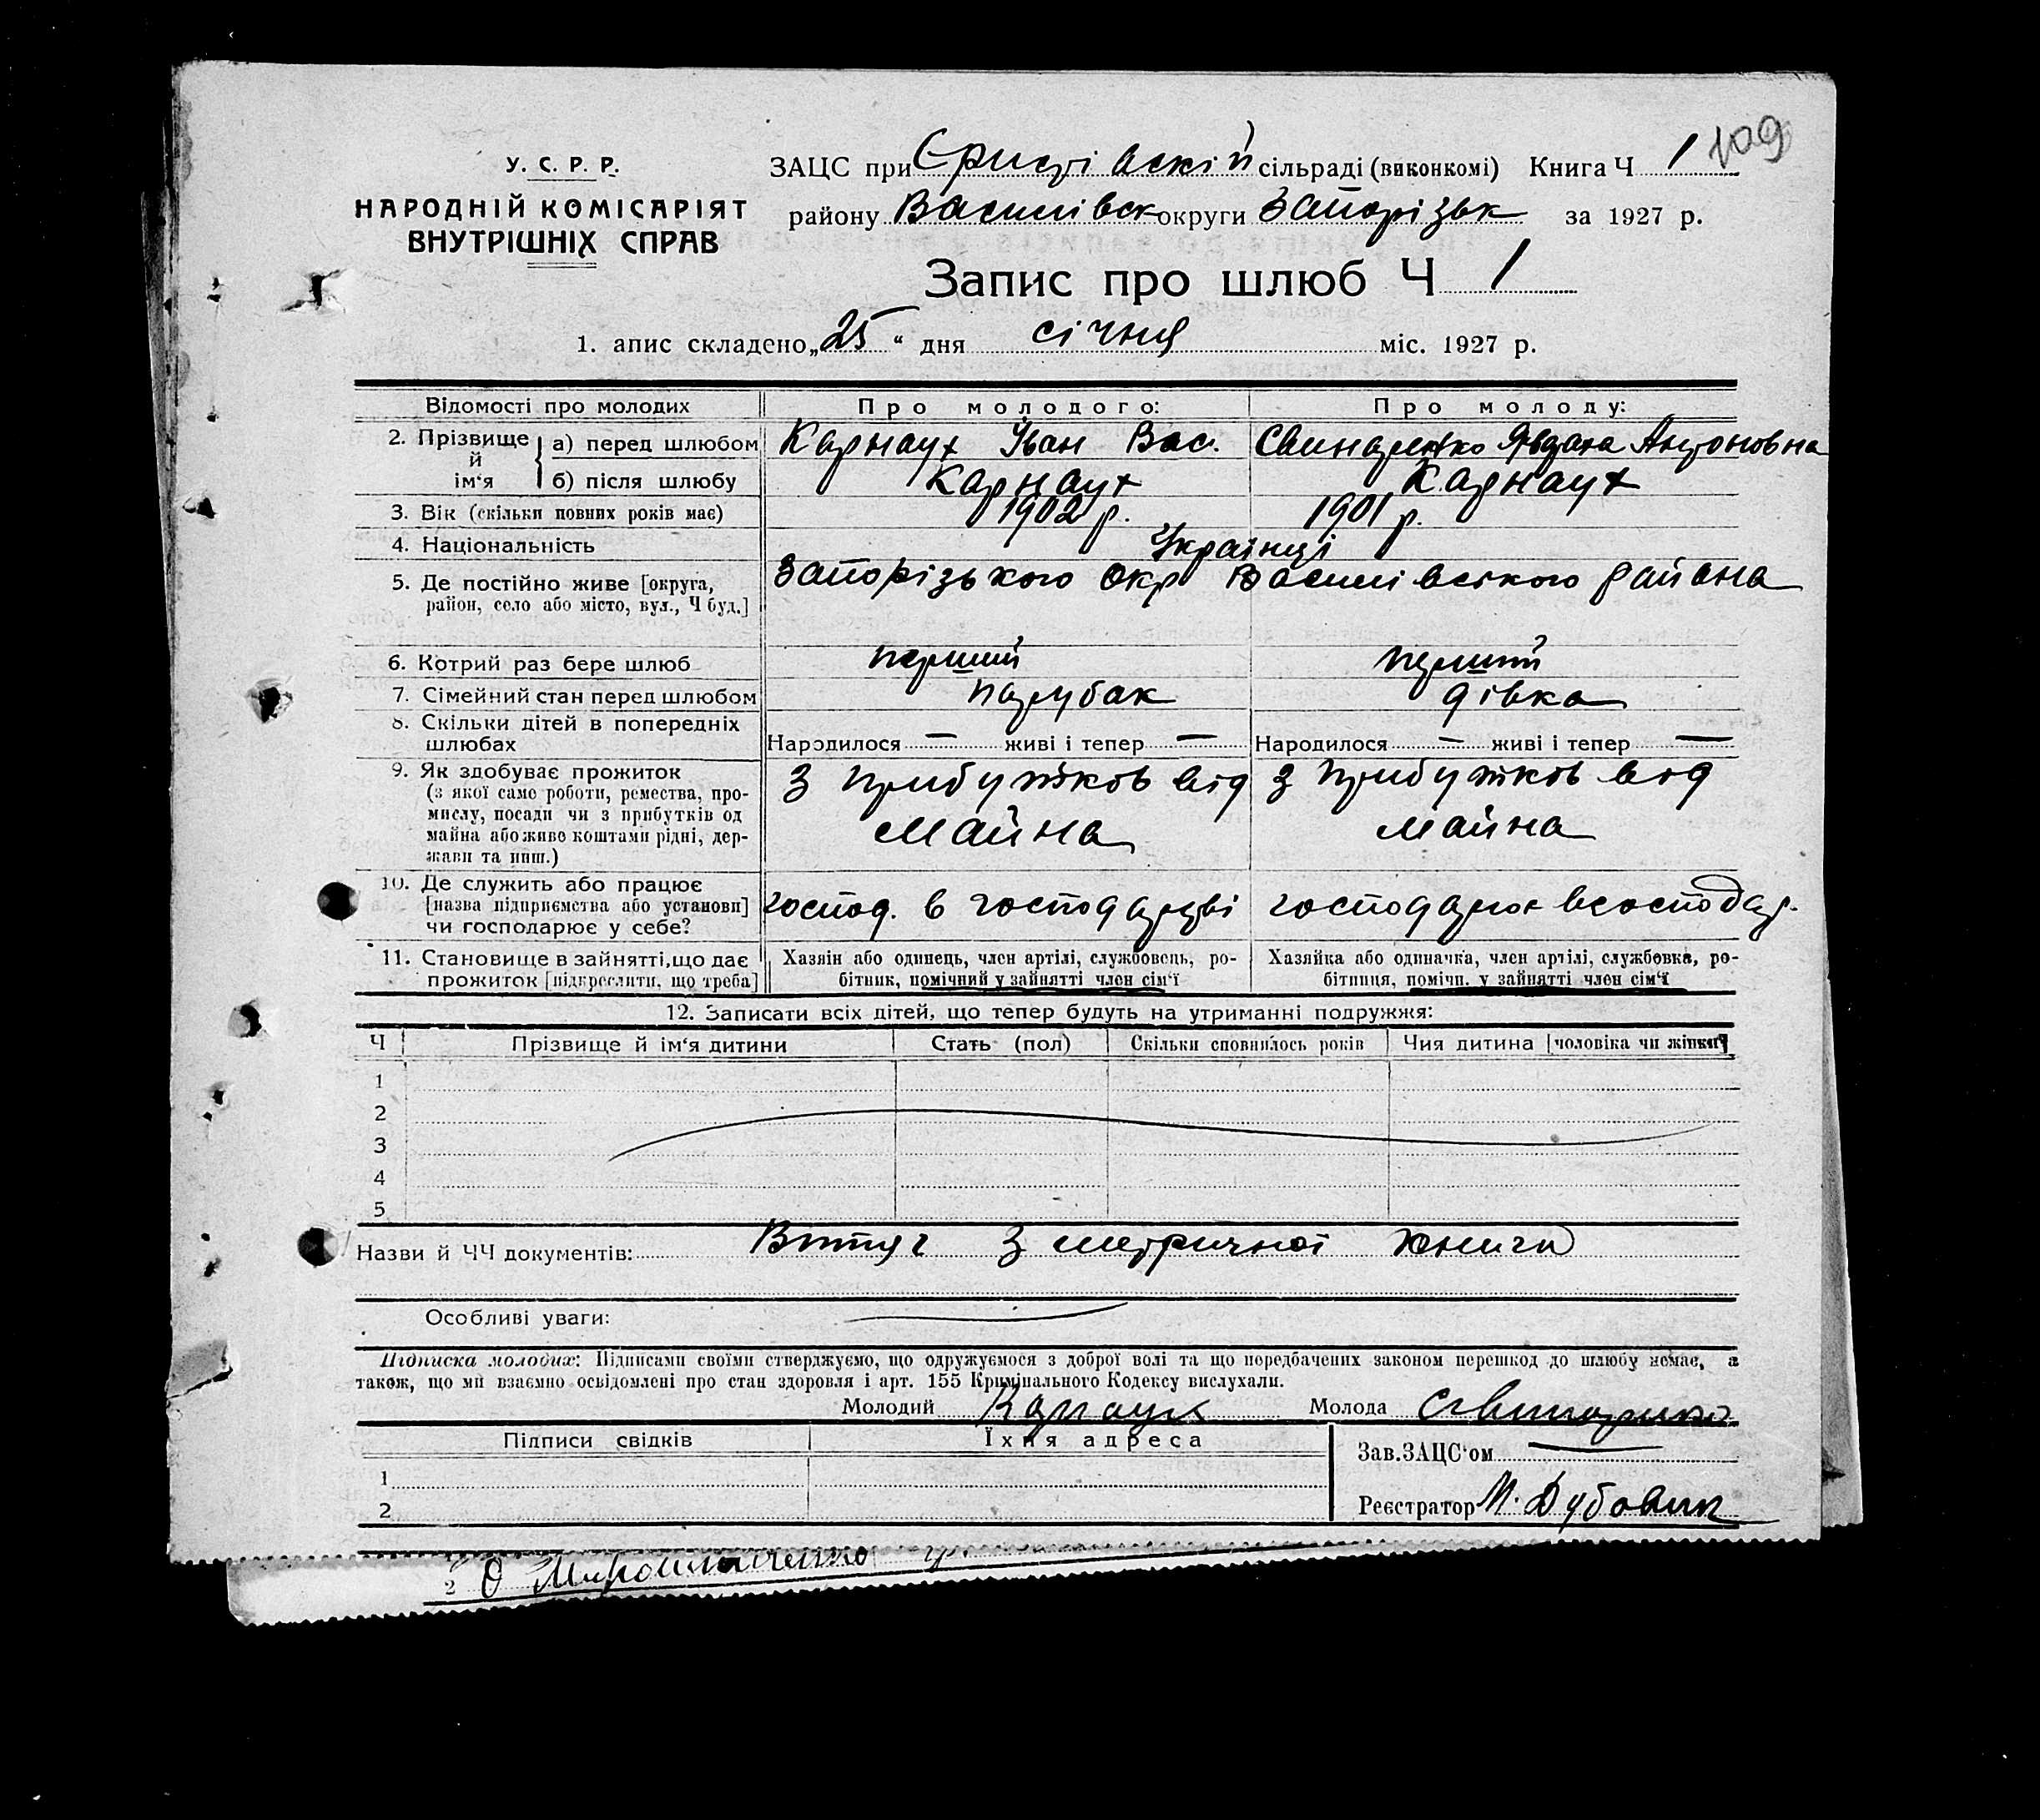 109
У. С. Р. Р.
НАРОДНІЙ КОМІСАРІЯТ
ВНУТРІШНІХ СПРАВ
ЗАЦС при Єристівскій сільраді (виконкомі) Книга Ч 1
району Василівск округи Запорізьк за 1927 р.
Запис про шлюб Ч 1
1. апис складено „25“ дня січня міс. 1927 р.
Відомості про молодих Про молодого: Про молоду:
2. Прізвище й ім‘я а) перед шлюбом Карнаух Іван Вас. Свинаренко Явдоха Антоновна
б) після шлюбу Карнаух Карнаух
3. Вік (скільки повних років має) 1902 р. 1901 р.
4. Національність Українці
5. Де постійно живе [округа, Запорізького Окр Василівського района
район, село або місто, вул., Ч буд.]
6. Котрий раз бере шлюб перший перший
7. Сімейний стан перед шлюбом парубак дівка
8. Скільки дітей в попередніх
шлюбах Народилося — живі і тепер — Народилося — живі і тепер —
9. Як здобуває прожиток з прибутков від з прибутков від
(з якої само роботи, ремества, про-
мислу, посади чи з прибутків од майна майна
майна або живе коштами рідні, дер-
жави та инш.)
10. Де служить або працює
[назва підприємства або установи] господ. в господарстві господарює в господар.
чи господарює у себе?
11. Становище в зайнятті, що дає Хазяїн або одинець, член артілі, службовець, ро- Хазяйка або одиначка, член артілі, службовка, ро-
прожиток [підкреслити, що треба] бітник, помічний у зайнятті член сім‘ї бітниця, помічн. у зайнятті член сім‘ї
12. Записати всіх дітей, що тепер будуть на утриманні подружжя:
Ч Прізвище й ім‘я дитини Стать (пол) Скільки сповнилось років Чия дитина [чоловіка чи жінки]
1
2
3
4
5
Назви й ЧЧ документів: Витяг з метричної книги
Особливі уваги:
Підписка молодих: Підписами своїми стверджуємо, що одружуємося з доброї волі та що передбачених законом перешкод до шлюбу немає, а
також, що ми взаємно освідомлені про стан здоровля і арт. 155 Кримінального Кодексу вислухали.
Молодий Карнаух Молода Свинаренко
Підписи свідків Їхня адреса
Зав. ЗАЦС‘ом —
1
2
Реєстратор М. Дубовик
2 О Мирошниченко